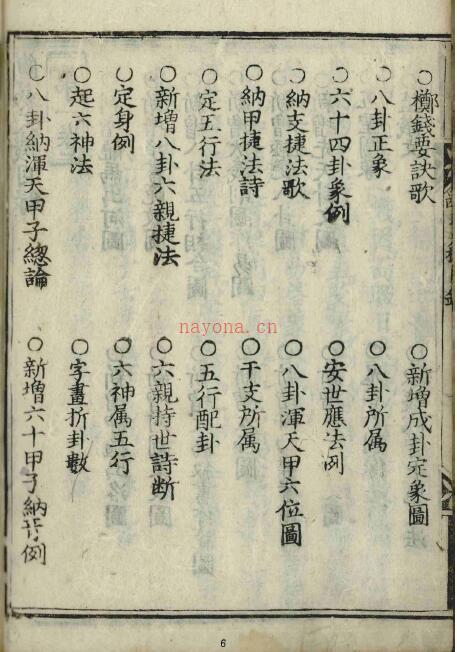 ○擲錢要訣歌
○新增成卦定象圖
○八卦正象
○八卦所屬
○六十四卦象例
○安世應法例
○納支捷法歌
○八卦渾天甲六位圖
○納甲捷法詩
○干支所属
○定五行法
○五行配卦
○新増八卦六親捷法
○六親持世詩断
○定身例
○六神属五行
○起六神法
○字畫折卦數
○八卦納渾天甲子總論
○新增六十甲子納音例
nayona.cn
6